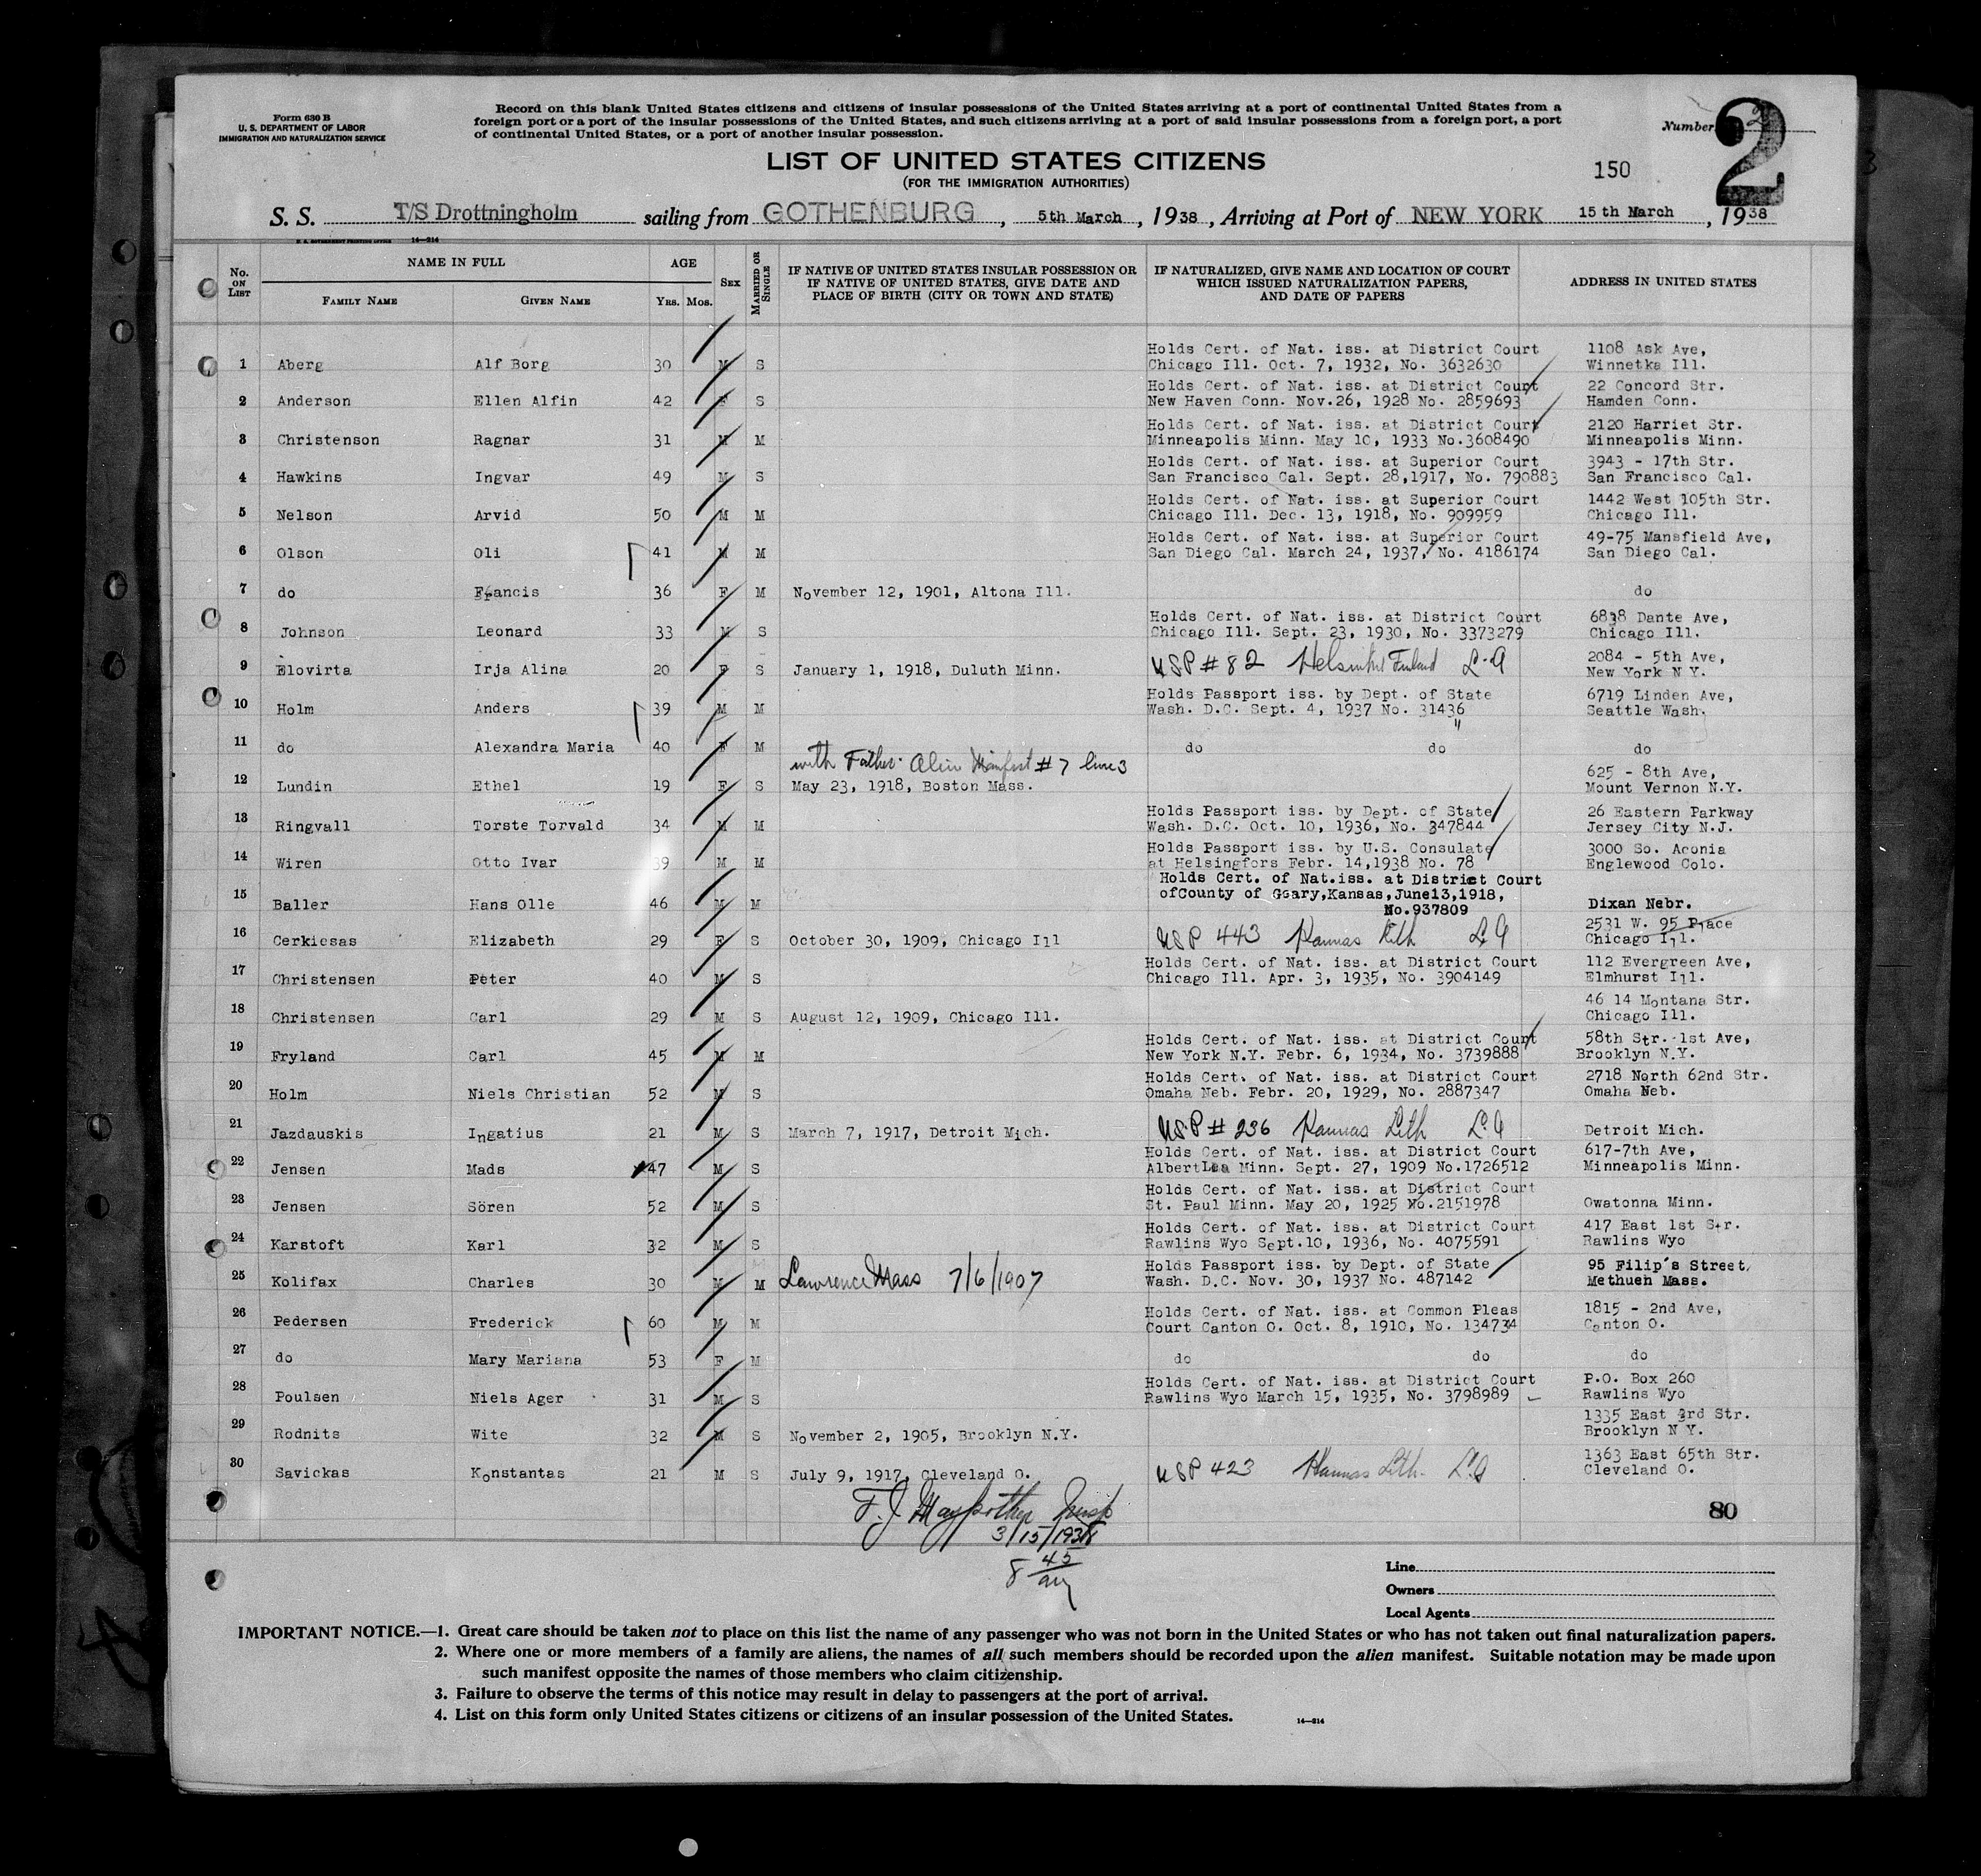 Form 630 B
U. S. DEPARTMENT OF LABOR
IMMIGRATION AND NATURALIZATION SERVICE
Record on this blank United States citizens and citizens of insular possessions of the United States arriving at a port of continental United States from a
foreign port or a port of the insular possessions of the United States, and such citizens arriving at a port of said insular possessions from a foreign port, a port
of continental United States, or a port of another insular possession.
Number 2
2
LIST OF UNITED STATES CITIZENS
(FOR THE IMMIGRATION AUTHORITIES)
150
S. S. T/S Drottningholm sailing from GOTHENBURG, 5th March, 1938, Arriving at Port of NEW YORK 15th March, 1938
14—214
No. ON LIST
NAME IN FULL
FAMILY NAME GIVEN NAME
AGE
YRS. MOS.
SEX
MARRIED OR SINGLE
IF NATIVE OF UNITED STATES INSULAR POSSESSION OR
IF NATIVE OF UNITED STATES, GIVE DATE AND
PLACE OF BIRTH (CITY OR TOWN AND STATE)
IF NATURALIZED, GIVE NAME AND LOCATION OF COURT
WHICH ISSUED NATURALIZATION PAPERS,
AND DATE OF PAPERS
ADDRESS IN UNITED STATES
Holds Cert. of Nat. iss. at District Court 1108 Ask Ave,
1 Aberg Alf Borg 30 M S Chicago Ill. Oct. 7, 1932, No. 3632630 Winnetka Ill.
Holds Cert. of Nat. iss. at District Court 22 Concord Str.
2 Anderson Ellen Alfin 42 F S New Haven Conn. Nov.26, 1928 No. 2859693 Hamden Conn.
Holds Cert. of Nat. iss. at District Court 2120 Harriet Str.
3 Christenson Ragnar 31 M M Minneapolis Minn. May 10, 1933 No.3608490 Minneapolis Minn.
Holds Cert. of Nat. iss. at Superior Court 3943 - 17th Str.
4 Hawkins Ingvar 49 M S San Francisco Cal. Sept. 28,1917, No. 790883 San Francisco Cal.
Holds Cert. of Nat. iss. at Superior Court 1442 West 105th Str.
5 Nelson Arvid 50 M M Chicago Ill. Dec. 13, 1918, No. 909959 Chicago Ill.
Holds Cert. of Nat. iss. at Superior Court 49-75 Mansfield Ave,
6 Olson Oli 41 M M San Diego Cal. March 24, 1937, No. 4186174 San Diego Cal.
7 do Francis 36 F M November 12, 1901, Altona Ill. do
Holds Cert. of Nat. iss. at District Court 6838 Dante Ave,
8 Johnson Leonard 33 M S Chicago Ill. Sept. 23, 1930, No. 3373279 Chicago Ill.
2084 - 5th Ave,
9 Elovirta Irja Alina 20 F S January 1, 1918, Duluth Minn. USP # 82 Helsinki Finland L.A New York N Y.
Holds Passport iss. by Dept. of State 6719 Linden Ave,
10 Holm Anders 39 M M Wash. D.C. Sept. 4, 1937 No. 31436 Seattle Wash.
"
11 do Alexandra Maria 40 F M do do do
with Father Alien Manifest # 7 line 3
625 - 8th Ave,
12 Lundin Ethel 19 F S May 23, 1918, Boston Mass. Mount Vernon N.Y.
Holds Passport iss. by Dept. of State 26 Eastern Parkway
13 Ringvall Torste Torvald 34 M M Wash. D.C. Oct. 10, 1936, No. 347844 Jersey City N.J.
Holds Passport iss. by U.S. Consulate 3000 So. Aconia
14 Wiren Otto Ivar 39 M M at Helsingfors Febr. 14,1938 No. 78 Englewood Colo.
Holds Cert. of Nat.iss. at District Court
ofCounty of Geary,Kansas,June13,1918,
15 Baller Hans Olle 46 M M No.937809 Dixan Nebr.
2531 W. 95 Place
16 Cerkiesas Elizabeth 29 F S October 30, 1909, Chicago Ill USP 443 Kaunas Lith L A Chicago Ill.
Holds Cert. of Nat. iss. at District Court 112 Evergreen Ave,
17 Christensen Peter 40 M S Chicago Ill. Apr. 3, 1935, No. 3904149 Elmhurst Ill.
46 14 Montana Str.
18 Christensen Carl 29 M S August 12, 1909, Chicago Ill. Chicago Ill.
Holds Cert. of Nat. iss. at District Court 58th Str. 1st Ave,
19 Fryland Carl 45 M M New York N.Y. Febr. 6, 1934, No. 3739888 Brooklyn N.Y.
Holds Cert. of Nat. iss. at District Court 2718 North 62nd Str.
20 Holm Niels Christian 52 M S Omaha Neb. Febr. 20, 1929, No. 2887347 Omaha Neb.
21 Jazdauskis Ingatius 21 M S March 7, 1917, Detroit Mich. USP # 236 Kaunas Lith L A Detroit Mich.
Holds Cert. of Nat. iss. at District Court 617-7th Ave,
22 Jensen Mads 47 M S AlbertLea Minn. Sept. 27, 1909 No.1726512 Minneapolis Minn.
Holds Cert. of Nat. iss. at District Court
23 Jensen Sören 52 M S St. Paul Minn. May 20, 1925 No.2151978 Owatonna Minn.
Holds Cert. of Nat. iss. at District Court 417 East 1st Str.
24 Karstoft Karl 32 M S Rawlins Wyo Sept.10, 1936, No. 4075591 Rawlins Wyo
Holds Passport iss. by Dept. of State 95 Filip's Street,
25 Kolifax Charles 30 M M Lawrence Mass 7/6/1907 Wash. D.C. Nov. 30, 1937 No. 487142 Methuen Mass.
Holds Cert. of Nat. iss. at Common Pleas 1815 - 2nd Ave,
26 Pedersen Frederick 60 M M Court Canton O. Oct. 8, 1910, No. 134734 Canton O.
27 do Mary Mariana 53 F M do do do
Holds Cert. of Nat. iss. at District Court P.O. Box 260
28 Poulsen Niels Ager 31 M S Rawlins Wyo March 15, 1935, No. 3798989 Rawlins Wyo
1335 East 3rd Str.
29 Rodnits Wite 32 M S November 2, 1905, Brooklyn N.Y. Brooklyn N Y.
1363 East 65th Str.
30 Savickas Konstantas 21 M S July 9, 1917, Cleveland O. USP 423 Kaunas Lith. L.A Cleveland O.
F. J. Insp
3/15/1938
8 45 am
80
Line
Owners
Local Agents
IMPORTANT NOTICE.—1. Great care should be taken not to place on this list the name of any passenger who was not born in the United States or who has not taken out final naturalization papers.
2. Where one or more members of a family are aliens, the names of all such members should be recorded upon the alien manifest. Suitable notation may be made upon
such manifest opposite the names of those members who claim citizenship.
3. Failure to observe the terms of this notice may result in delay to passengers at the port of arrival.
4. List on this form only United States citizens or citizens of an insular possession of the United States. 14—214